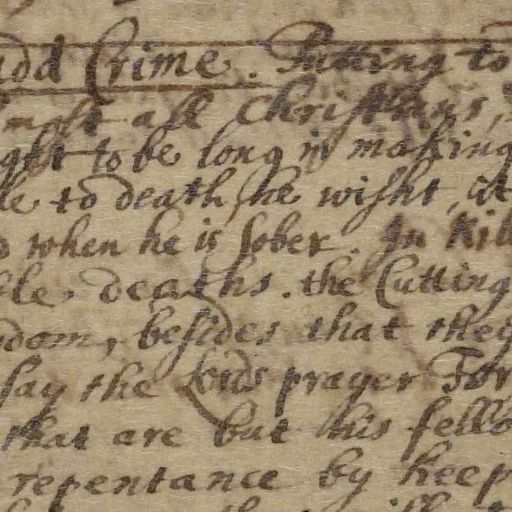 Crime. Putting to
most all Christians,
ght to be long in making
le to death, he wisht, it
when he is sober. In Kil
ble deaths. the Cutting
dom, besides that they
say the Lords prayer For
that are but his fello
repentance by keep